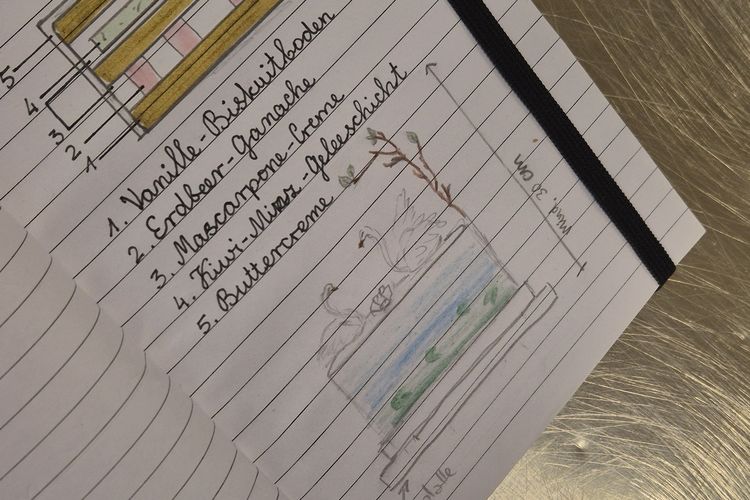 5
4
3
2
1
1. Vanille-Biskuitboden
2. Erdbeer-Ganache
3. Mascarpone-Creme
4. Kiwi-Minz-Geleeschicht
5. Buttercreme
mind. 30 cm